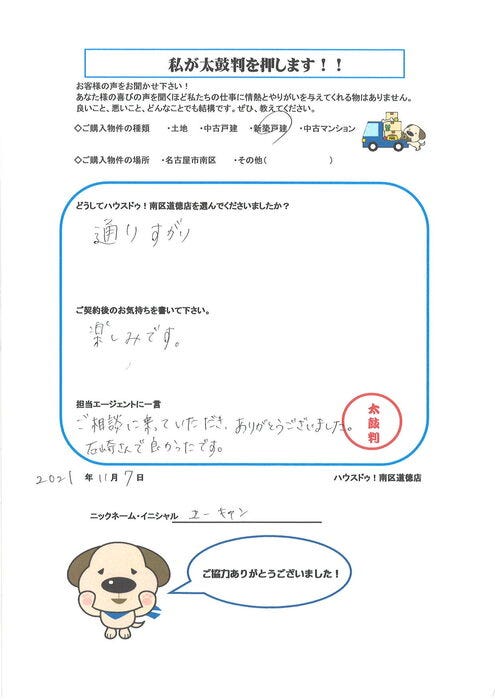 私が太鼓判を押します！！
お客様の声をお聞かせ下さい！
あなた様の喜びの声を聞くほど私たちの仕事に情熱とやりがいを与えてくれる物はありません。
良いこと、悪いこと、どんなことでも結構です。ぜひ、教えてください。
◇ご購入物件の種類　・土地　・中古戸建　・新築戸建　・中古マンション
◇ご購入物件の場所　・名古屋市南区　・その他(　　　　　　)
どうしてハウスドゥ！南区道徳店を選んでくださいましたか？
通りすがり
ご契約後のお気持ちを書いて下さい。
楽しみです。
担当エージェントに一言
ご相談に乗っていただき、ありがとうございました。
石崎さんで良かったです。
太鼓判
2021 年 11 月 7 日
ハウスドゥ！南区道徳店
ニックネーム・イニシャル　ユーキャン
ご協力ありがとうございました！